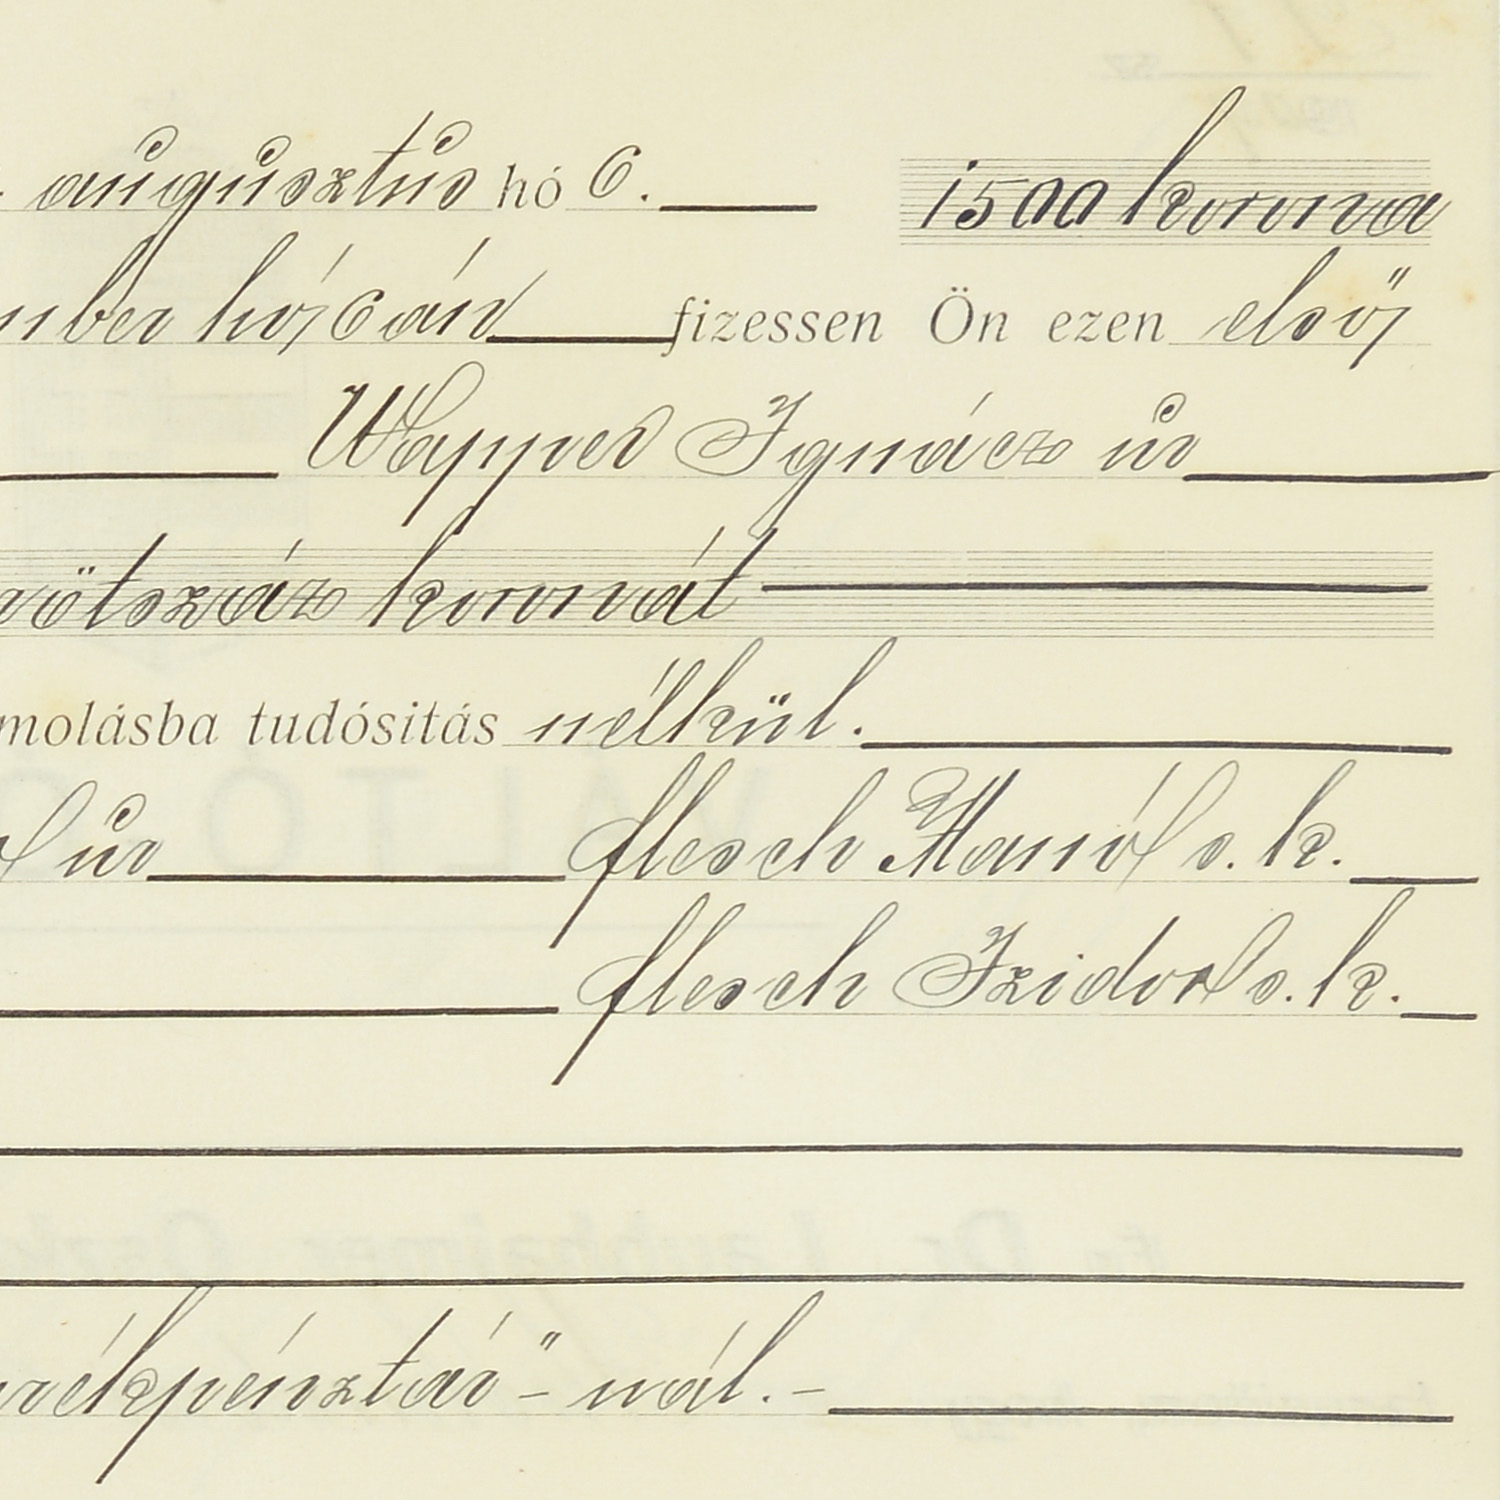 augusztus hó 6. 1500 korona
mber hó 6án fizessen Ön ezen első
Wappel Ignácz úr
ötszáz koronát
molásba tudósitás nélkül.
úr flesch Manó s. k.
flesch Izidor s. k.
rékpénztár"- nál.-